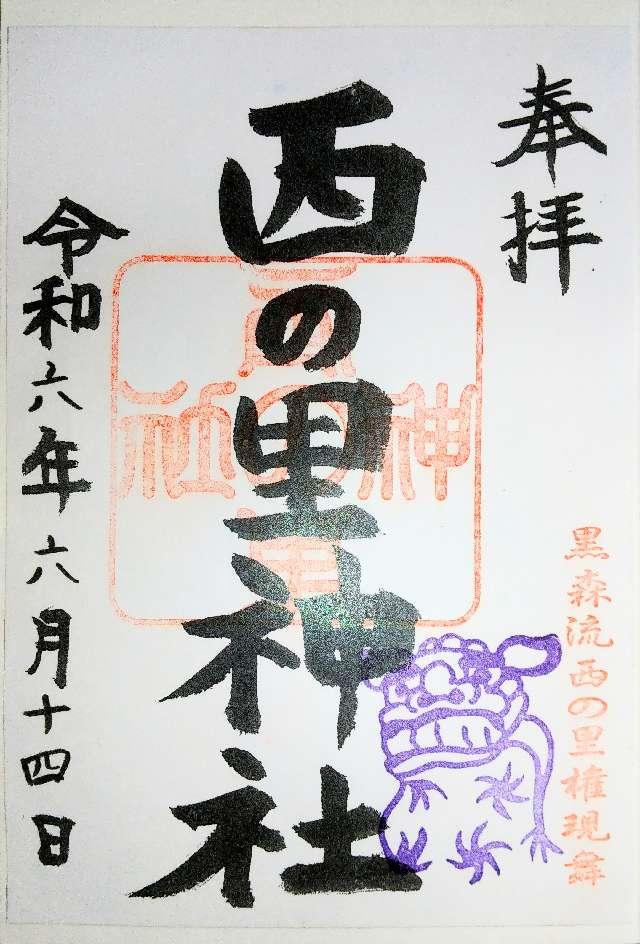 奉拝
黒森流西の里権現舞
西の里神社
神社
令和六年六月十四日